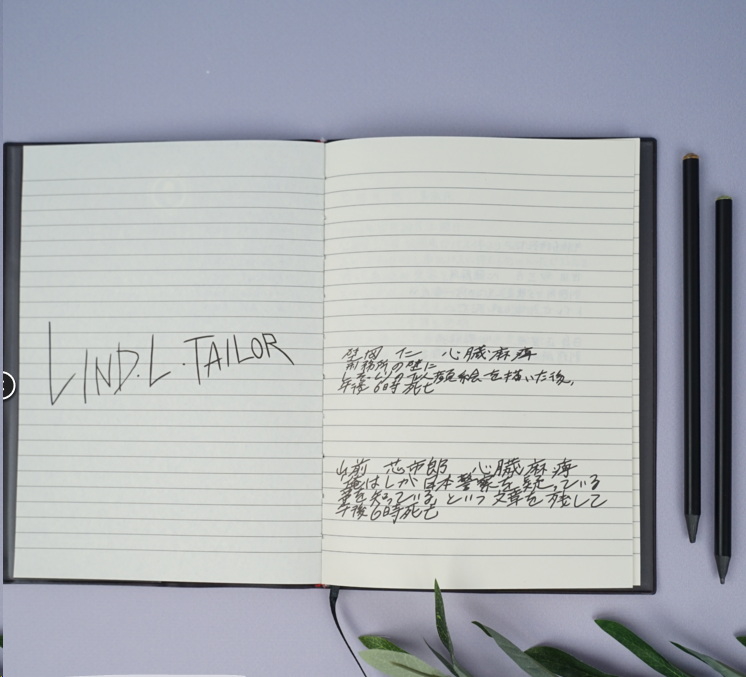 LIND.L.TAILOR
岡 仁 心臓麻痺
刑務所の壁に
似顔絵を描いた後、
午後6時死亡
山前 芯市郎 心臓麻痺
はLが日本警察を疑っている
を知っている。という文章を残して
午後6時死亡